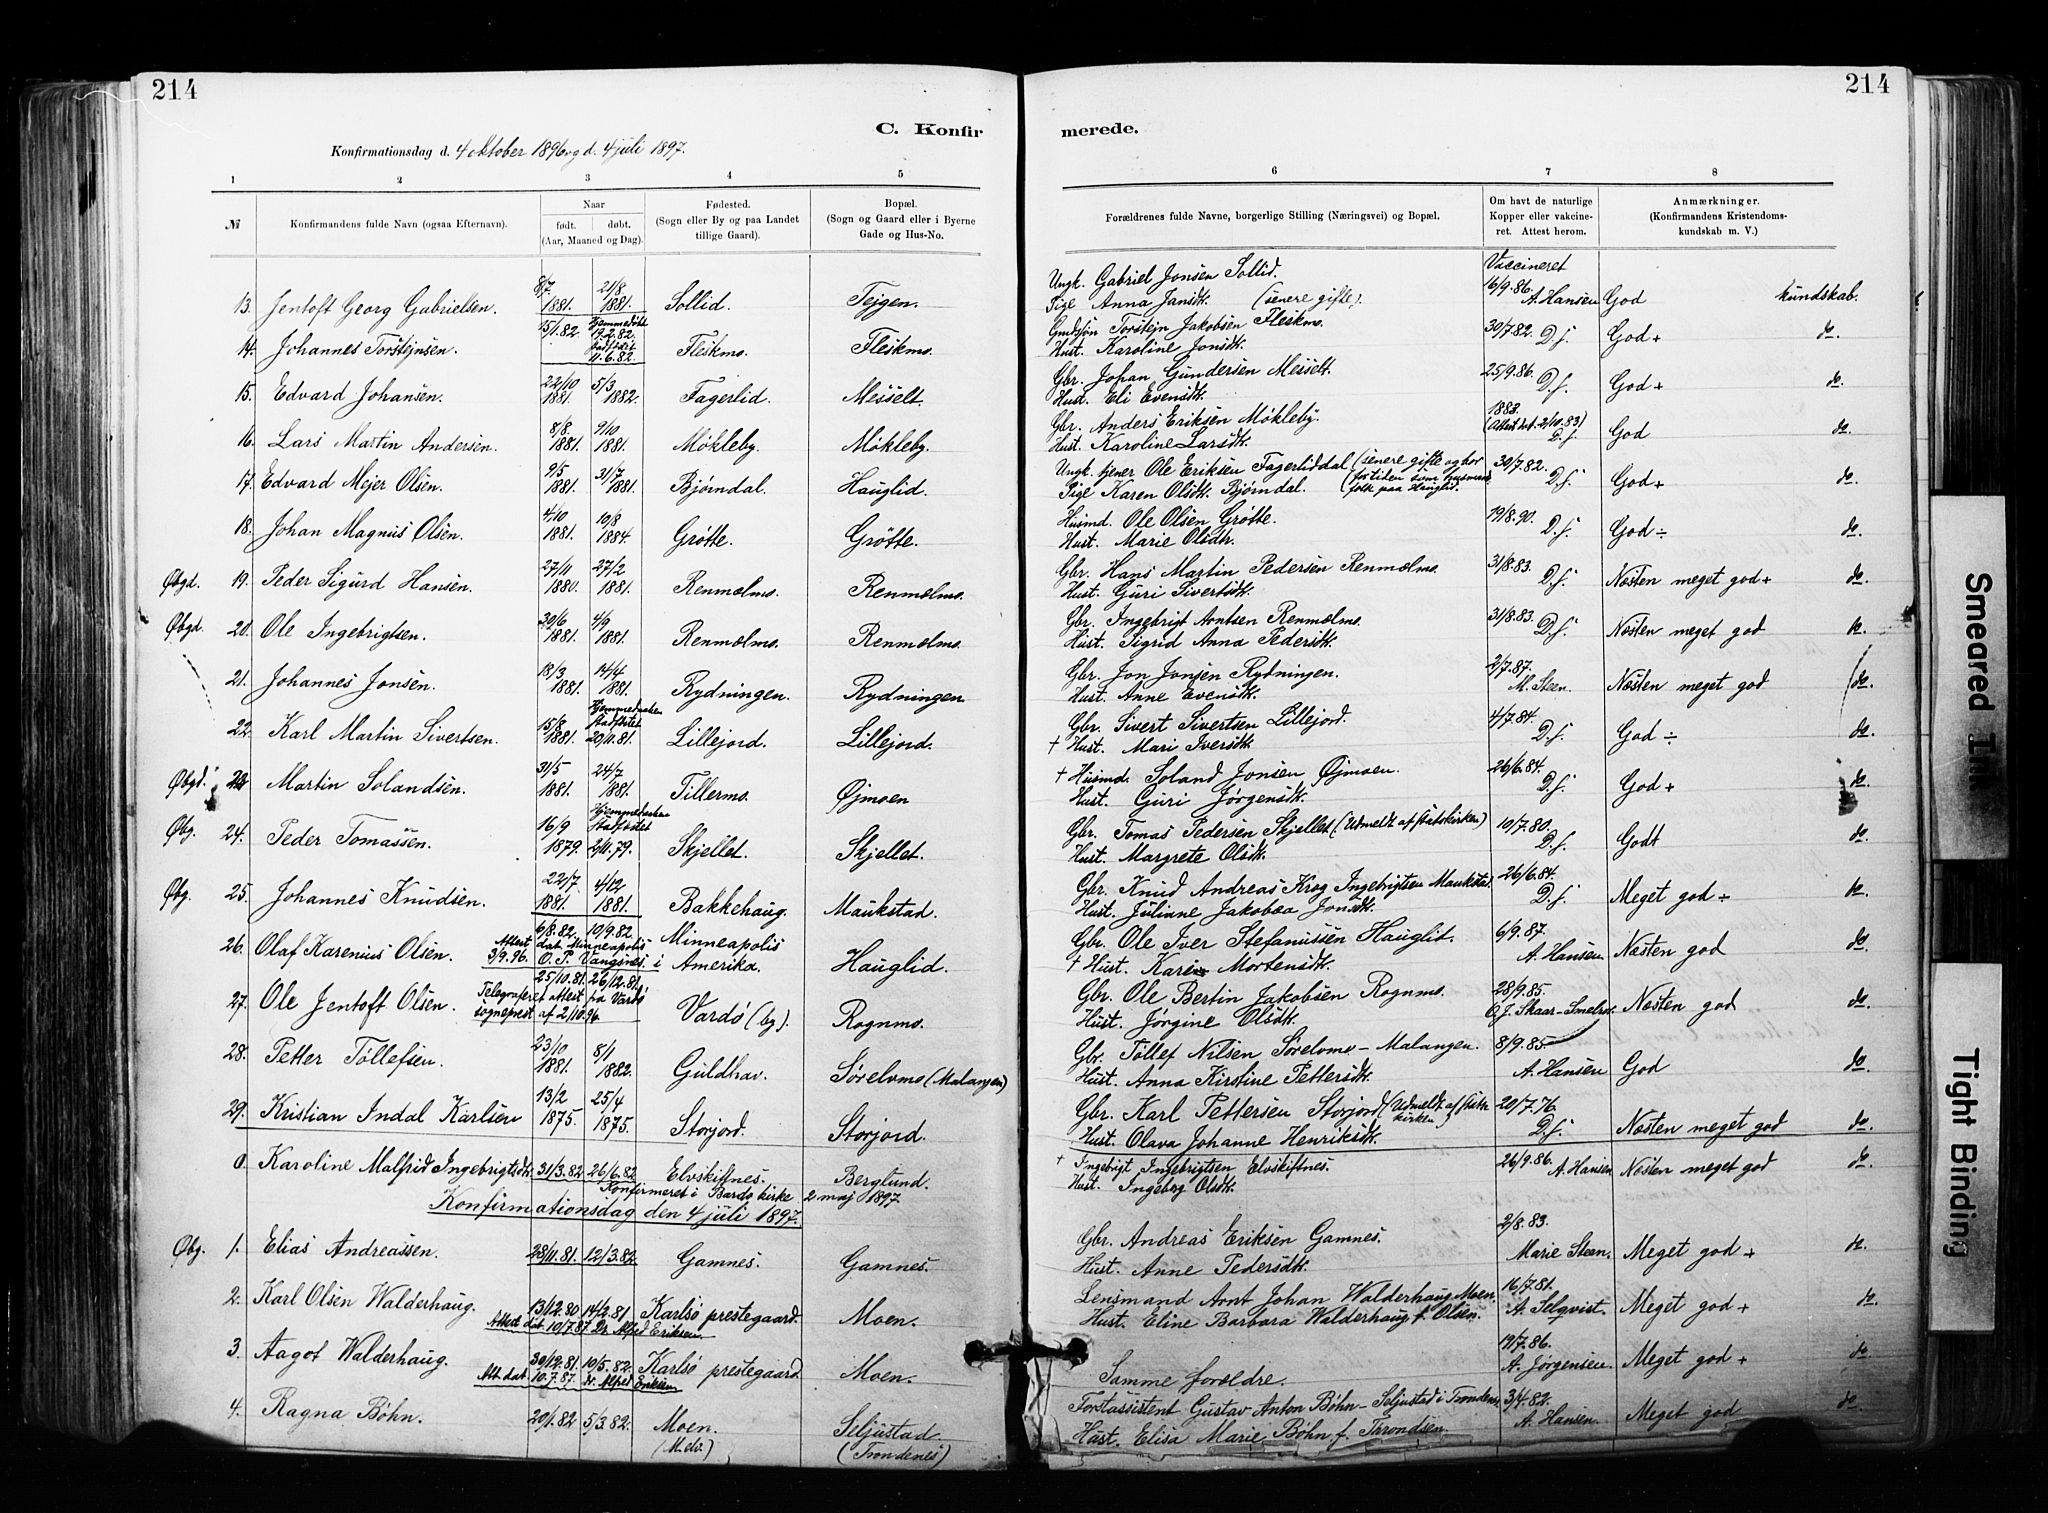 214
214
C. Konfir
merede.
Konfirmationsdag d. 4 oktober 1896 og d. 4 juli 1897.
1 2 3 4 5 6 7 8
№ Konfirmandens fulde Navn (ogsaa Efternavn). Naar født. døbt. (Aar, Maaned og Dag). Fødested. (Sogn eller By og paa Landet tillige Gaard). Bopæl. (Sogn og Gaard eller i Byerne Gade og Hus-No. Forældrenes fulde Navne, borgerlige Stilling (Næringsvei) og Bopæl. Om havt de naturlige Kopper eller vaccineret. Attest herom. Anmærkninger. (Konfirmandens Kristendomskundskab m. V.)
13. Jentoft Georg Gabrielsen. 8/7. 1881. 21/8 1881. Sollid. Tejgen. Ungk. Gabriel Jonsen Sollid. Vaccineret 16/9.86. A. Hansen God kundskab.
Pige Anna Jansdt. (senere gifte).
14. Johannes Torstejnsen. 15/1.82. Hjemmedøbt 19.2.82. stadfæstet 11.6.82. Fleskmo. Fleskmo. Gmdsøn Torstejn Jakobsen Fleskmo. 30/7.82. D.s. God + do.
Hust. Karoline Jonsdt.
15. Edvard Johansen. 22/10 1881. 5/3 1882. Fagerlid. Messelt. Gbr. Johan Gundersen Messelt. 25/9.86. D.s. God + do.
Hust. Eli Evensdt.
16. Lars Martin Andersen. 8/8. 1881. 9/10 1881. Møkleby. Møkleby. Gbr. Anders Eriksen Møkleby. 1883. (Attest dat. 2/10.83) D.s. God do.
Hust. Karoline Larsdt.
17. Edvard Mejer Olsen. 9/5 1881. 31/7 1881. Bjørndal. Hauglid. Ungk. tjener Ole Eriksen Fagerliddal (senere gifte og bor 30/7.82. D.s. God + do.
Pige Karen Olsdt. Bjørndal. fortiden som husmandsfolk paa Hauglid.
18. Johan Magnus Olsen. 4/10 1881. 10/8 1884. Grøtte. Grøtte. Husmd. Ole Olsen Grøtte. 19/8.90. D.s. God ÷ do.
Hust. Marie Olsdtr.
Øbgd. 19. Peder Sigurd Hansen. 27/11 1880. 27/2 1881. Renmælmo. Renmælmo. Gbr. Hans Martin Pedersen Renmælmo. 31/8.83. D.s. Næsten meget god + do.
Hust. Guri Sivertsdt.
Øbgd. 20. Ole Ingebrigtsen. 30/6 1881. 4/9 1881. Renmælmo. Renmælmo. Gbr. Ingebrigt Arntsen Renmælmo. 31/8.83. D.s. Næsten meget god do.
Hust. Sigrid Anna Pedersdt.
21. Johannes Jonsen. 18/3 1881. 14/4 1881. Rydningen. Rydningen. Gbr. Jon Jonsen Rydningen. 2/7.87. M. Steen. Næsten meget god do.
Hust. Anne Evensdt.
22. Karl Martin Sivertsen. 15/8 1881. Hjemmedaaben stadfæstet 20/11.81. Lillejord. Lillejord. Gbr. Sivert Sivertsen Lillejord. 4/7.84. D.s. God ÷ do.
† Hust. Mari Iversdt.
Øbgd. 23. Martin Solandsen. 31/5 1881. 24/7 1881. Tillermo. Øjmoen † Husmd. Soland Jonsen Øjmoen. 26/6.84. D.s. God + do.
Hust. Guri Jørgensdt.
Øbg. 24. Peder Tomassen. 16/9 1879. Hjemmedaaben stadfæstet 2/11.79. Skjellet. Skjellet. Gbr. Tomas Pedersen Skjellet (Udmeldt af statskirken) 10/7.80. D.s. Godt do.
Hust. Margrete Olsdt.
Øbg. 25. Johannes Knudsen. 22/7 1881. 4/12 1881. Bakkehaug. Maukstad. Gbr. Knud Andreas Krog Ingebrigtsen Maukstad. 26/6.84. D.s. Meget god ÷ do.
Hust. Juliane Jakobæa Jonsdt.
26. Olaf Karenius Olsen. 6/8.82. 10/9.82. Attest dat. Minneapolis 3/9.96. O. P. Vangsnes i Minneapolis Amerika. Hauglid. Gbr. Ole Iver Stefanussen Hauglid. 6/9.87. A. Hansen Næsten god do.
† Hust. Karen Mortensdt.
27. Ole Jentoft Olsen. 25/10.81. 26/12.81. Telegraferet attest fra Vardø sogneprest af 2/10.96. Vardø (by). Rognmo. Gbr. Ole Bertin Jakobsen Rognmo. 28/9.85. O. J. Skaar-Smelror Næsten god do.
Hust. Jørgine Olsdt.
28. Petter Tøllefsen. 23/10 1881. 8/1 1882. Guldhav. Sørelvmo (Malangen) Gbr. Tøllef Nilsen Sørelvmo – Malangen. 8/9.85. A. Hansen God do.
Hust. Anna Kirstine Pettersdt.
29. Kristian Indal Karlsen 13/2 1875. 25/4 1875. Storjord. Storjord. Gbr. Karl Pettersen Storjord (Udmeldt af stats kirken) 20/7.76. D.s. Næsten meget god do.
Hust. Olava Johanne Henriksdt.
Karoline Malfrid Ingebrigtsdt. 31/3.82. 26/6.82. Elvskiftnes. Berglund. † Ingebrigt Ingebrigtsen Elvskiftnes. 26/9.86. A. Hansen Næsten meget god do.
Konfirmeret i Bardo kirke 2 maj 1897 Hust. Ingeborg Olsdt.
Konfirmationsdag den 4 juli 1897.
Øbg. 1. Elias Andreassen. 28/11.81. 12/3.82. Gamnes. Gamnes. Gbr. Andreas Eriksen Gamnes. 2/8.83. Marie Steen. Meget god + do.
Hust. Anne Pedersdt.
2. Karl Olsen Walderhaug. 13/12.80 14/2.81 Attest dat. 10/7.87 Dr. Alfred Eriksen Karlsø prestegaard. Moen. Lensmand Arnt Johan Walderhaug Moen. 16/7.81. A. Selqvist. Meget god + do.
Hust. Eline Barbara Walderhaug f. Olsen.
3. Aagot Walderhaug. 30/12.81. 10/5.82. Att. dat. 10.7.87. Dr. Alfred Eriksen Karlsø prestegaard Moen. Samme forældre. 19/7.86. A. Jørgensen. Meget god + do.
4. Ragna Bøhn. 20/1.82 5/3.82. Moen. (M.elv.) Seljustad (Trondenes) Forstassistent Gustav Anton Bøhn – Seljustad i Trondenes 3/4.82. A. Hansen. Meget god do.
Hust. Elisa Marie Bøhn f. Throndsen.
Smeared Ink
Tight Binding